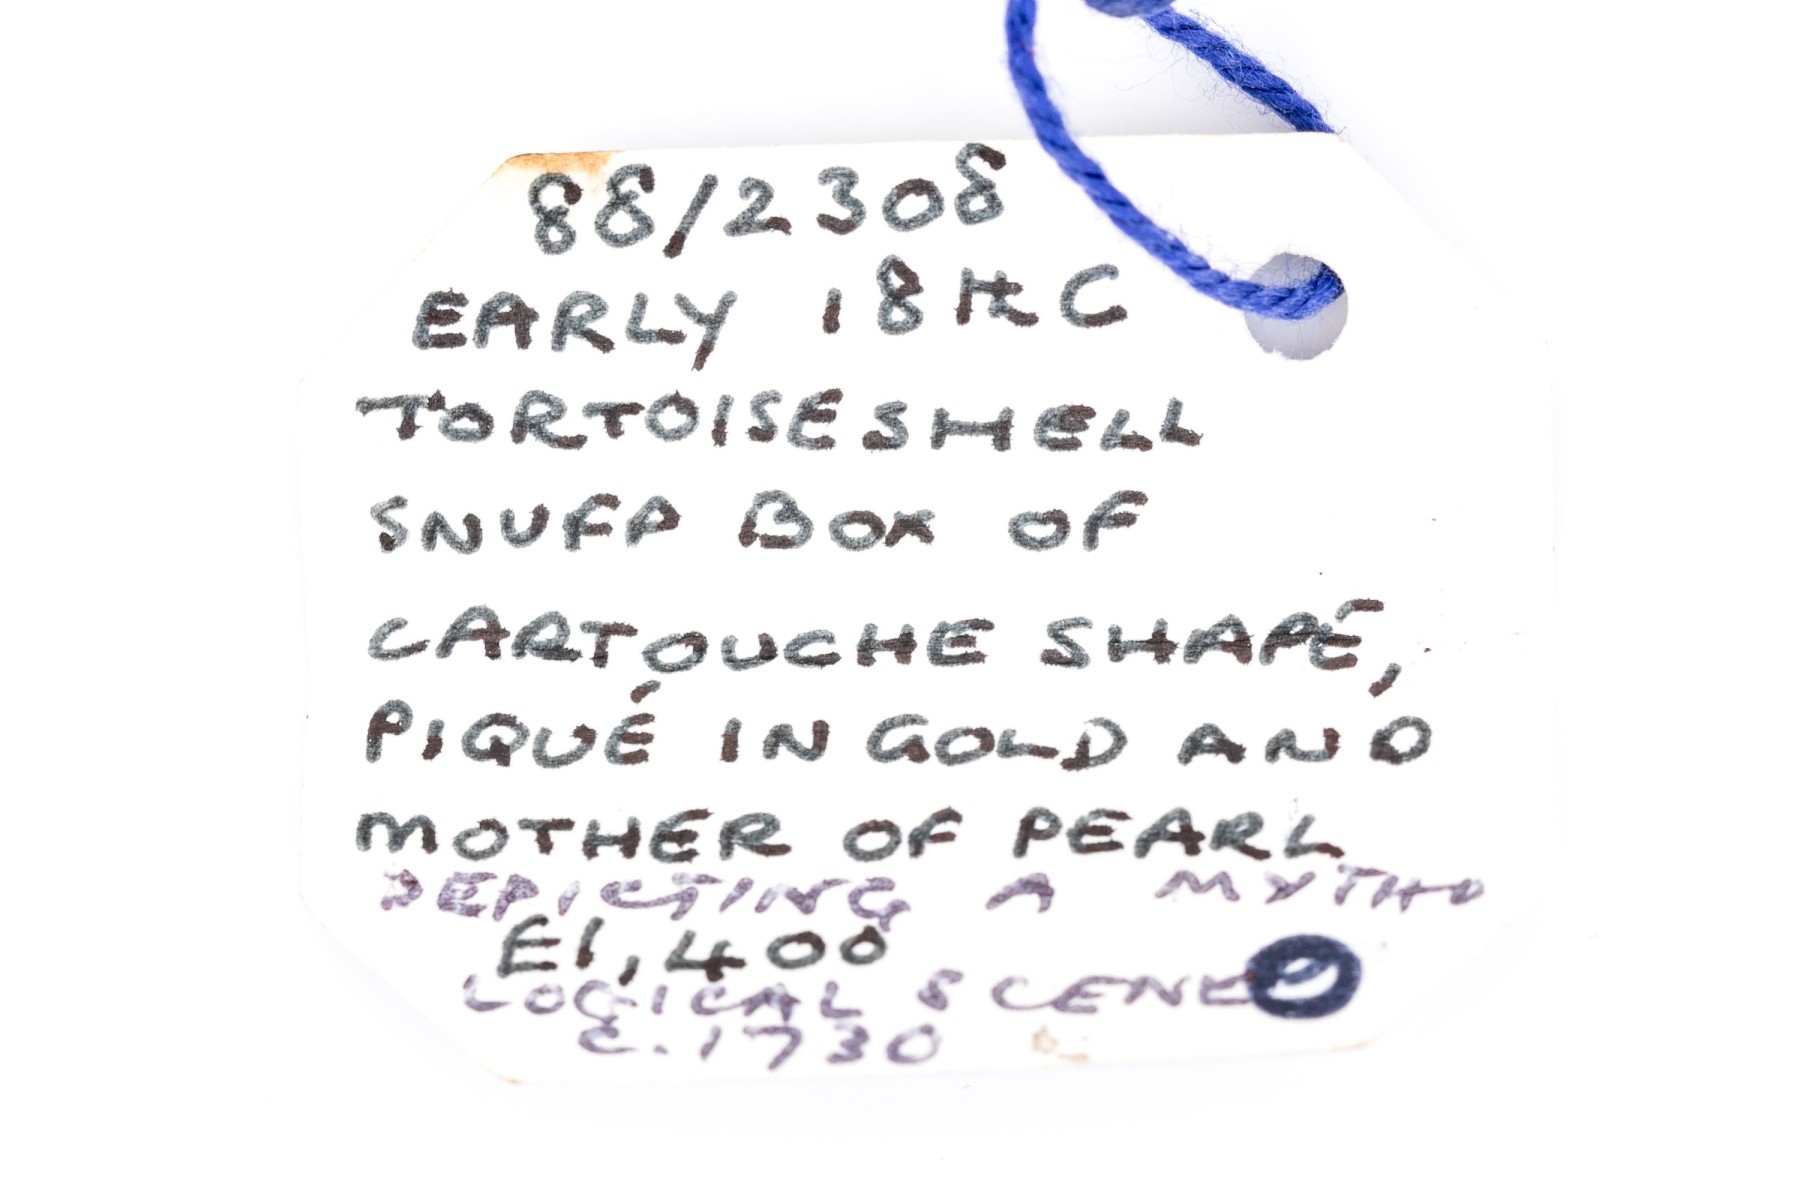 88/2308
EARLY 18th C
TORTOISESHELL
SNUFF BOX OF
CARTOUCHE SHAPE,
PIQUÉ IN GOLD AND
MOTHER OF PEARL
DEPICTING A MYTHO
£1,400
LOGICAL SCENE
c.1730